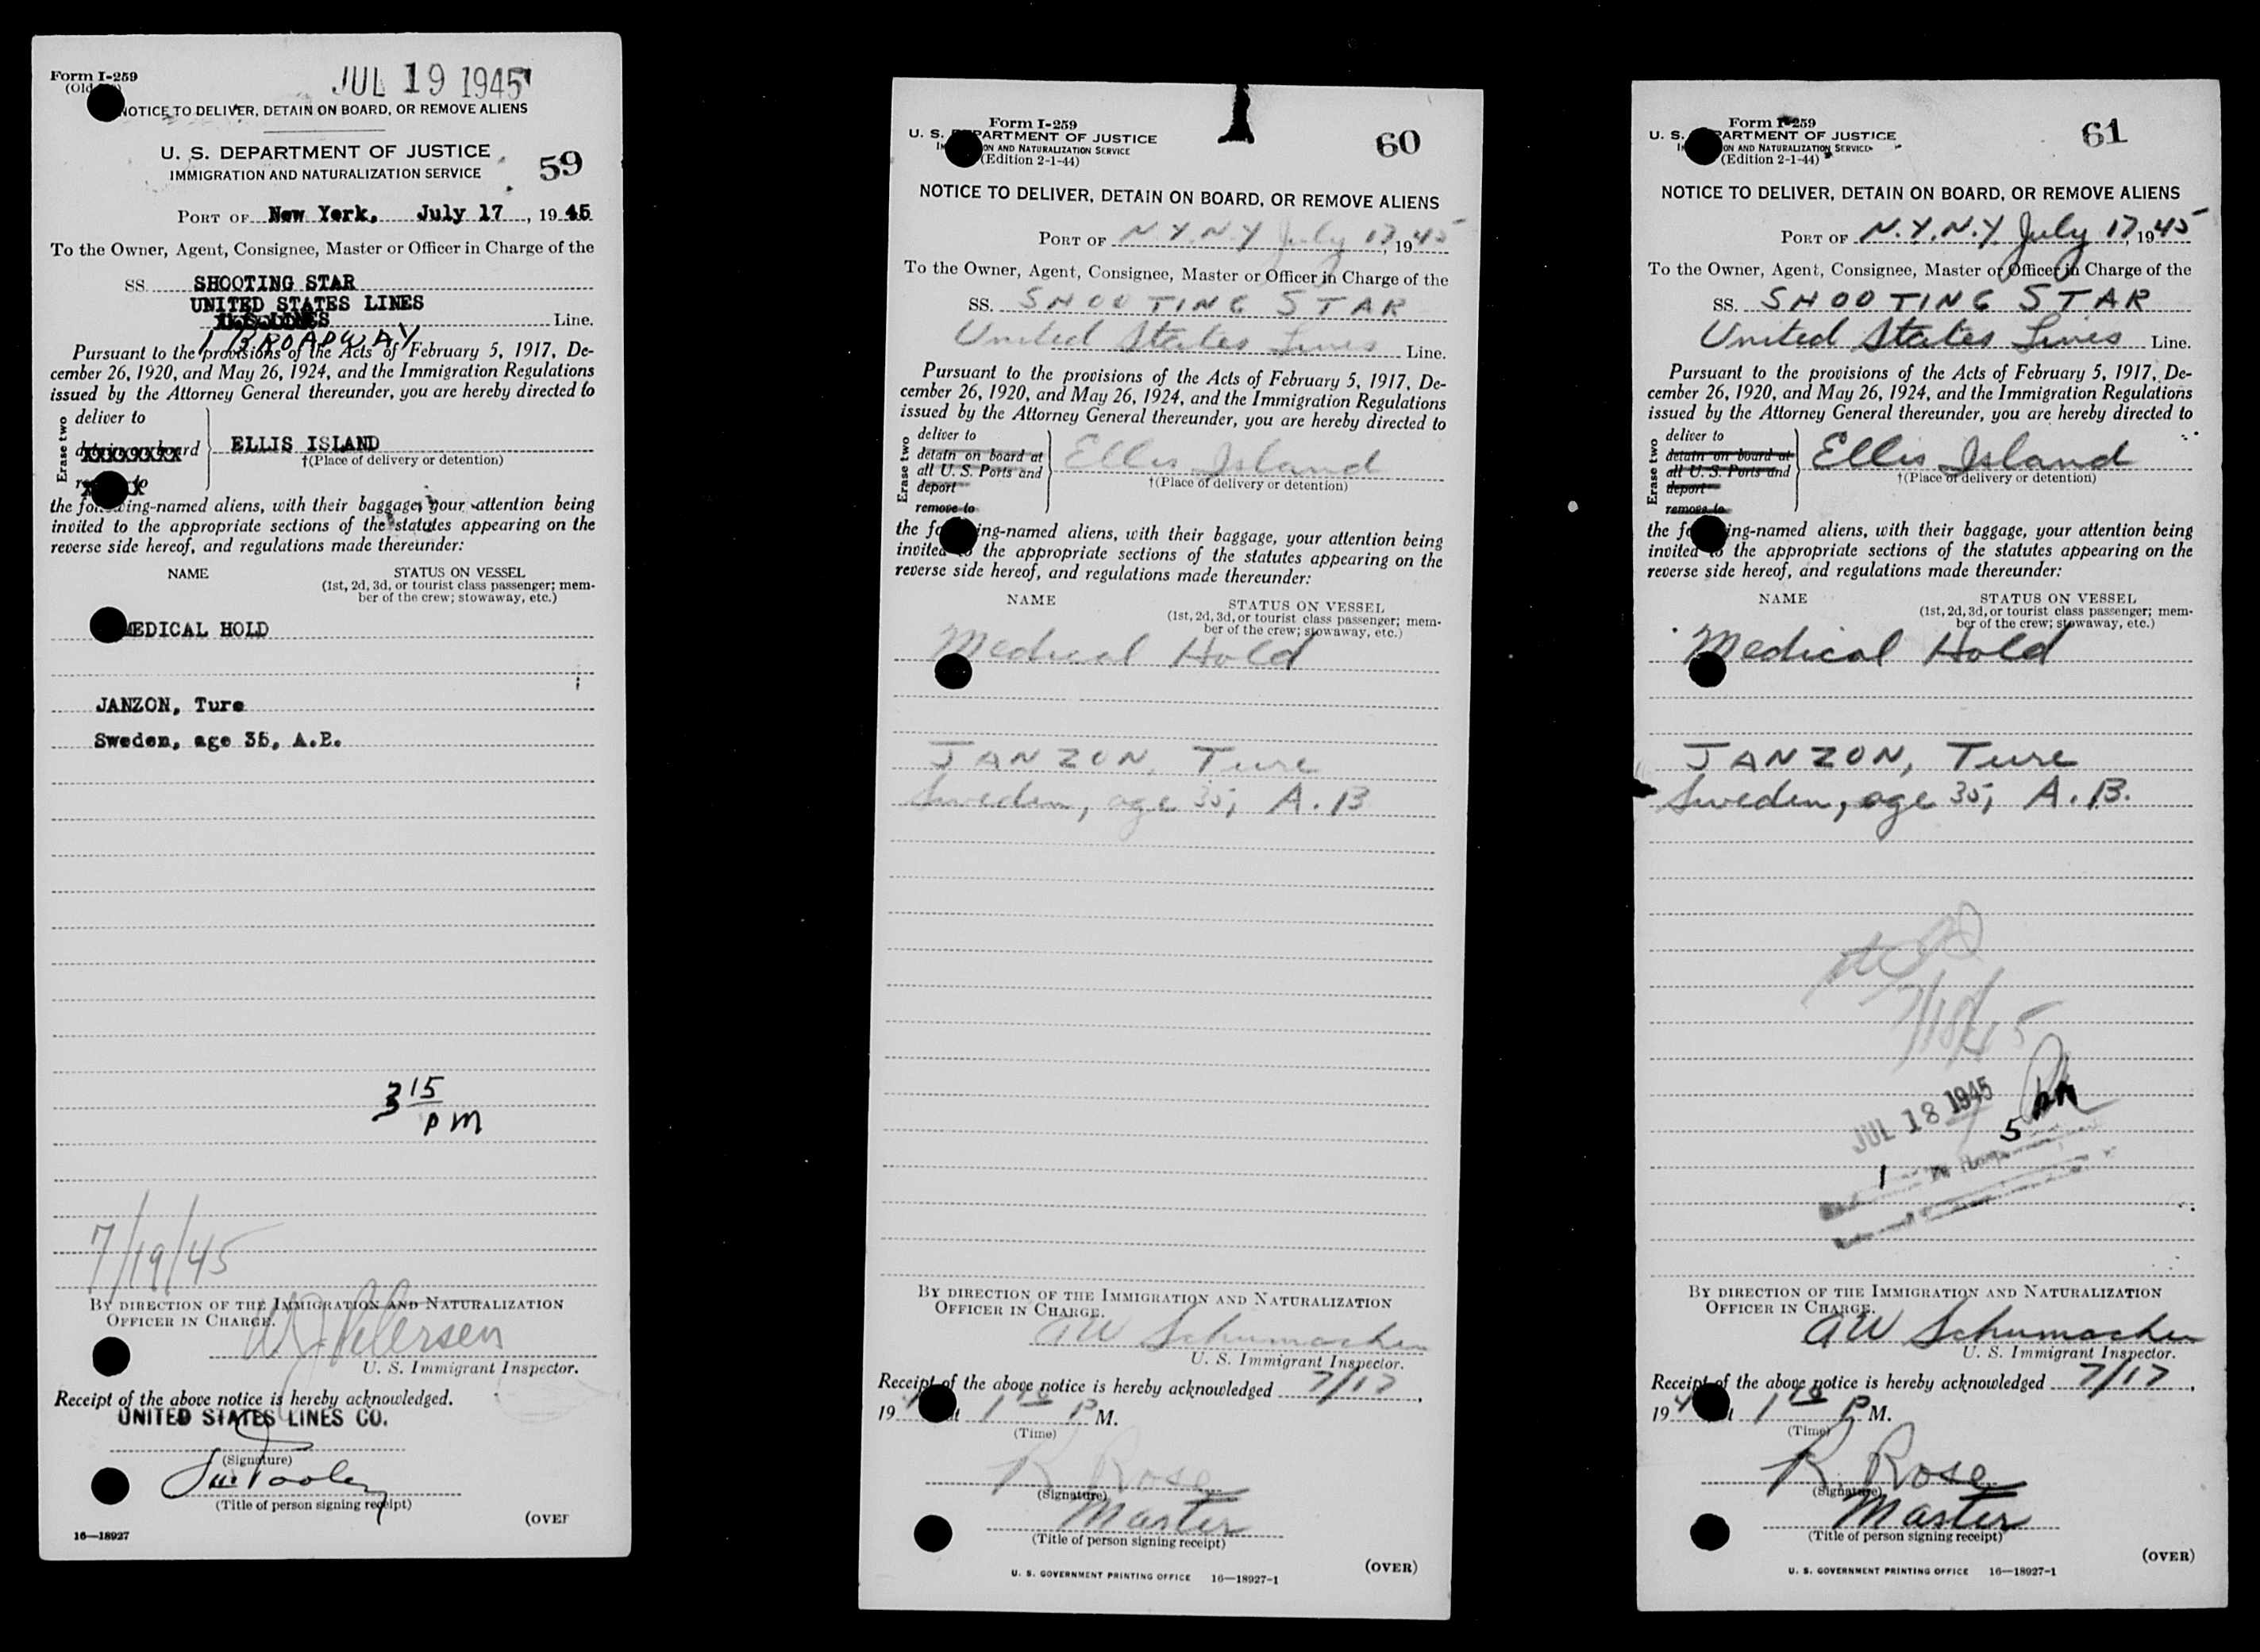 Form I-259
(Old
JUL 19 1945
NOTICE TO DELIVER, DETAIN ON BOARD, OR REMOVE ALIENS
U. S. DEPARTMENT OF JUSTICE
IMMIGRATION AND NATURALIZATION SERVICE
59
PORT OF New York, July 17, 1945
To the Owner, Agent, Consignee, Master or Officer in Charge of the
SS. SHOOTING STAR
UNITED STATES LINES
Line.
1 BROADWAY
Pursuant to the provisions of the Acts of February 5, 1917, De-
cember 26, 1920, and May 26, 1924, and the Immigration Regulations
issued by the Attorney General thereunder, you are hereby directed to
Erase two
deliver to
ELLIS ISLAND
†(Place of delivery or detention)
the following-named aliens, with their baggage, your attention being
invited to the appropriate sections of the statutes appearing on the
reverse side hereof, and regulations made thereunder:
NAME STATUS ON VESSEL
(1st, 2d, 3d, or tourist class passenger; mem-
ber of the crew; stowaway, etc.)
MEDICAL HOLD
JANZON, Ture
Sweden, age 35, A.B.
3 15
PM
7/19/45
BY DIRECTION OF THE IMMIGRATION AND NATURALIZATION
OFFICER IN CHARGE.
W J Petersen
U. S. Immigrant Inspector.
Receipt of the above notice is hereby acknowledged.
UNITED STATES LINES CO.
(Signature)
(Title of person signing receipt)
(OVER
16—18927
Form I-259
U. S. DEPARTMENT OF JUSTICE
IMMIGRATION AND NATURALIZATION SERVICE
(Edition 2-1-44)
60
NOTICE TO DELIVER, DETAIN ON BOARD, OR REMOVE ALIENS
PORT OF N.Y.N.Y July 17, 1945
To the Owner, Agent, Consignee, Master or Officer in Charge of the
SS. SHOOTING STAR
United States Lines Line.
Pursuant to the provisions of the Acts of February 5, 1917, De-
cember 26, 1920, and May 26, 1924, and the Immigration Regulations
issued by the Attorney General thereunder, you are hereby directed to
Erase two
deliver to
detain on board at
all U. S. Ports and
deport
remove to
Ellis Island
†(Place of delivery or detention)
the following-named aliens, with their baggage, your attention being
invited to the appropriate sections of the statutes appearing on the
reverse side hereof, and regulations made thereunder:
NAME STATUS ON VESSEL
(1st, 2d, 3d, or tourist class passenger; mem-
ber of the crew; stowaway, etc.)
Medical Hold
JANZON, Ture
Sweden, age 35, A.B
BY DIRECTION OF THE IMMIGRATION AND NATURALIZATION
OFFICER IN CHARGE.
AW Schumacher
U. S. Immigrant Inspector.
Receipt of the above notice is hereby acknowledged 7/17,
19 at 1 10 P M.
(Time)
R Rose
(Signature)
Master
(Title of person signing receipt)
(OVER)
U. S. GOVERNMENT PRINTING OFFICE 16—18927-1
Form I-259
U. S. DEPARTMENT OF JUSTICE
IMMIGRATION AND NATURALIZATION SERVICE
(Edition 2-1-44)
61
NOTICE TO DELIVER, DETAIN ON BOARD, OR REMOVE ALIENS
PORT OF N.Y.N.Y. July 17, 1945
To the Owner, Agent, Consignee, Master or Officer in Charge of the
SS. SHOOTING STAR
United States Lines Line.
Pursuant to the provisions of the Acts of February 5, 1917, De-
cember 26, 1920, and May 26, 1924, and the Immigration Regulations
issued by the Attorney General thereunder, you are hereby directed to
Erase two
deliver to
detain on board at
all U. S. Ports and
deport
remove to
Ellis Island
†(Place of delivery or detention)
the following-named aliens, with their baggage, your attention being
invited to the appropriate sections of the statutes appearing on the
reverse side hereof, and regulations made thereunder:
NAME STATUS ON VESSEL
(1st, 2d, 3d, or tourist class passenger; mem-
ber of the crew; stowaway, etc.)
Medical Hold
JANZON, Ture
Sweden, age 35, A.B.
7/18/45
JUL 18 1945
5 PM
1
BY DIRECTION OF THE IMMIGRATION AND NATURALIZATION
OFFICER IN CHARGE.
AW Schumacher
U. S. Immigrant Inspector.
Receipt of the above notice is hereby acknowledged 7/17,
194 at 1 10 P M.
(Time)
R Rose
(Signature)
Master
(Title of person signing receipt)
(OVER)
U. S. GOVERNMENT PRINTING OFFICE 16—18927-1